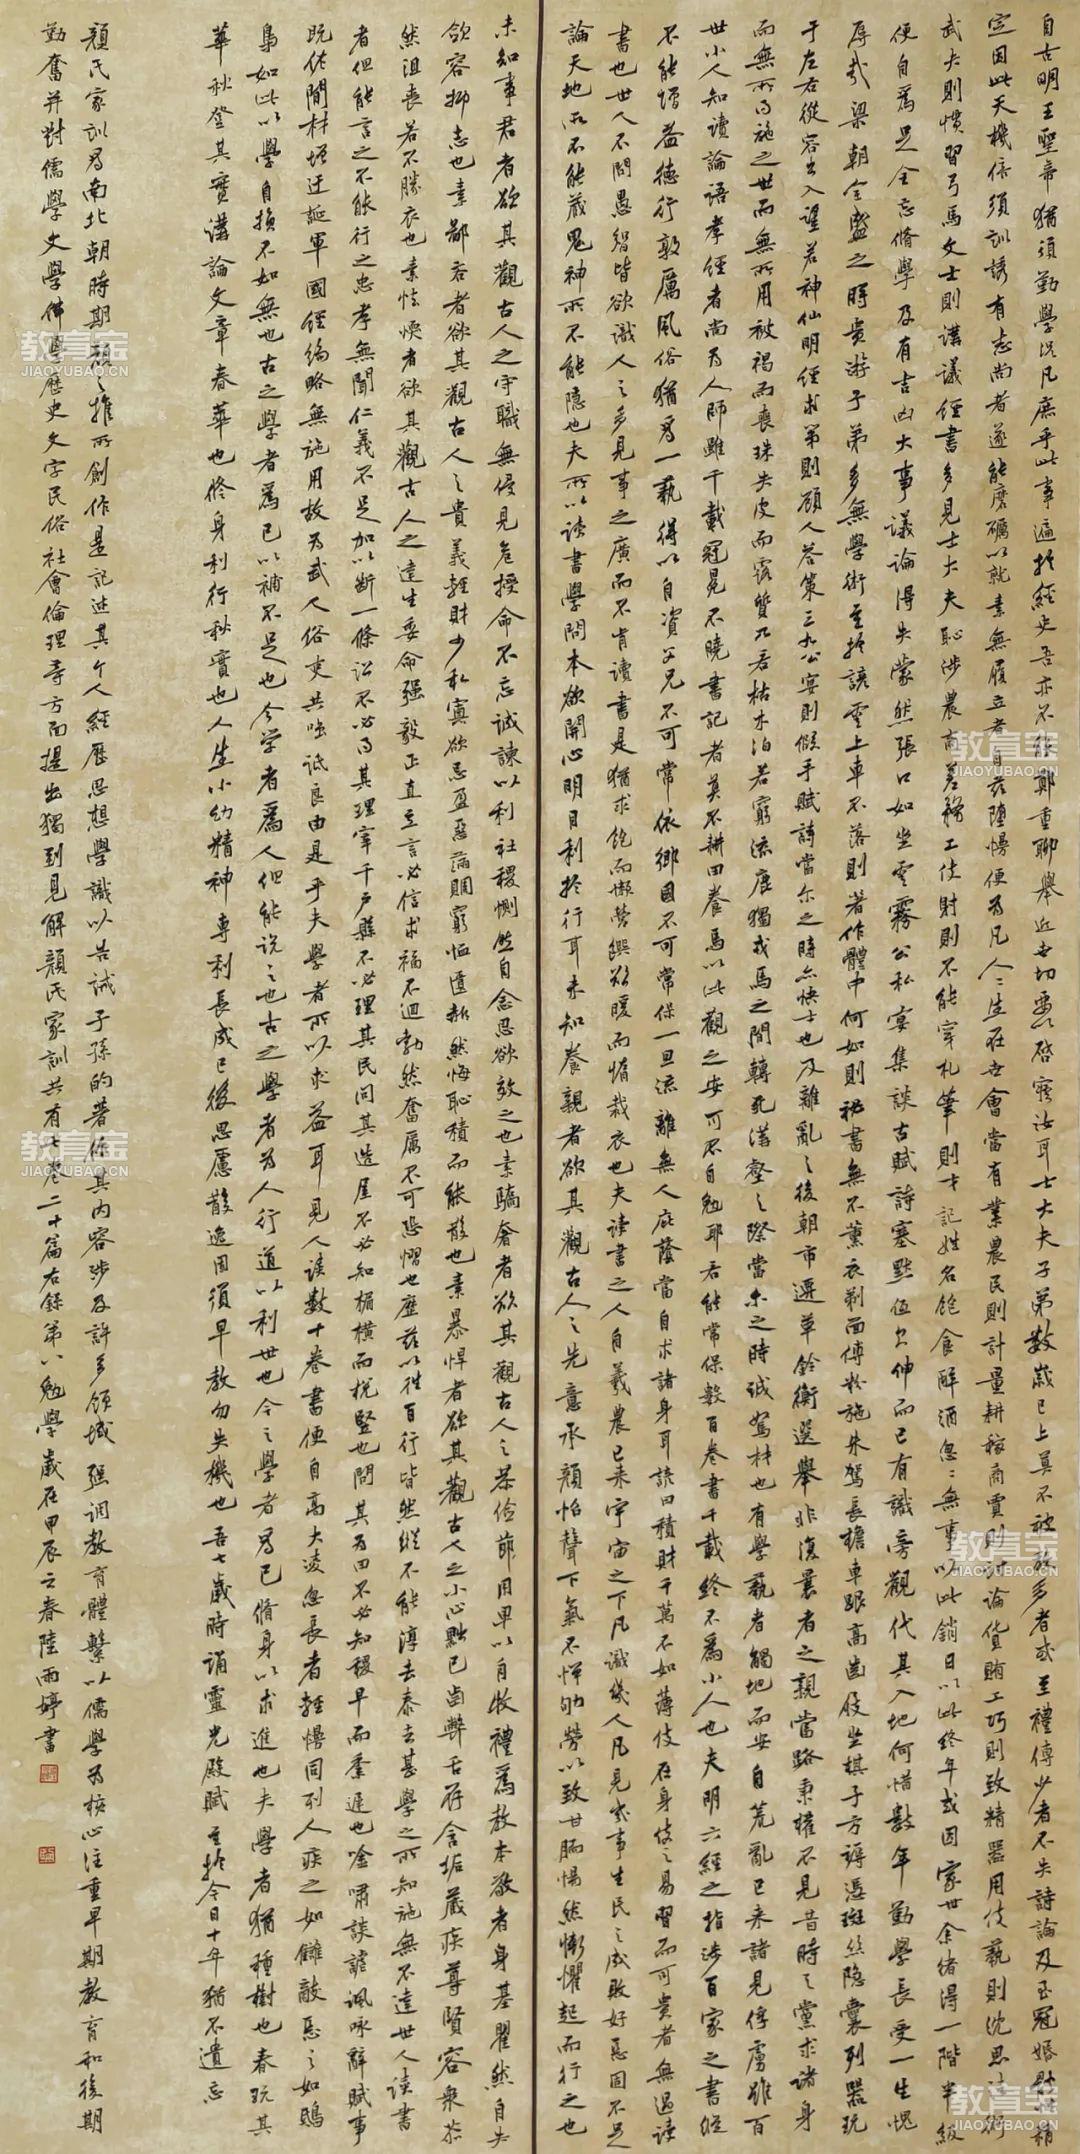 自古明王聖帝猶須勤學況凡庶乎此事遍於經史吾亦不能鄭重聊舉近世切要以啓寤汝耳士大夫子弟數歲已上莫不被教多者或至禮傳少者不失詩論及至冠婚體性稍
定因此天機倍須訓誘有志尚者遂能磨礪以就素無履立者自茲墮慢便為凡人人生在世會當有業農民則計量耕稼商賈則討論貨賄工巧則致精器用伎藝則沈思法術
武夫則慣習弓馬文士則講議經書多見士大夫恥涉農商羞務工伎射則不能穿札筆則才記姓名飽食醉酒忽忽無事以此銷日以此終年或因家世余緒得一階半級
便自為足全忘脩學及有吉凶大事議論得失蒙然張口如坐雲霧公私宴集談古賦詩塞默低頭欠伸而已有識旁觀代其入地何惜數年勤學長受一生愧
辱哉梁朝全盛之時貴遊子弟多無學術至於諺雲上車不落則著作體中何如則祕書無不薰衣剃面傅粉施朱駕長檐車跟高齒屐坐棋子方褥憑斑絲隱囊列器玩
于左右從容出入望若神仙明經求第則顧人答策三九公宴則假手賦詩當尔之時亦快士也及離亂之後朝市遷革銓衡選舉非復曩者之親當路秉權不見昔時之黨求諸身
而無所得施之世而無所用被褐而喪珠失皮而露質兀若枯木泊若窮流鹿獨戎馬之間轉死溝壑之際當尔之時誠駑材也有學藝者觸地而安自荒亂已來諸見俘虜雖百
世小人知讀論語孝經者尚為人師雖千載冠冕不曉書記者莫不耕田養馬以此觀之安可不自勉耶若能常保數百卷書千載終不為小人也夫明六經之指涉百家之書縱
不能增益德行敦厲風俗猶為一藝得以自資父兄不可常依鄉國不可常保一旦流離無人庇蔭當自求諸身耳諺曰積財千萬不如薄伎在身伎之易習而可貴者無過讀
書也世人不問愚智皆欲識人之多見事之廣而不肯讀書是猶求飽而懶營饌欲暖而惰裁衣也夫讀書之人自羲農已來宇宙之下凡識幾人凡見幾事生民之成敗好惡固不足
論天地所不能藏鬼神所不能隱也夫所以讀書學問本欲開心明目利於行耳未知養親者欲其觀古人之先意承顏怡聲下氣不憚劬勞以致甘腝惕然慚懼起而行之也
未知事君者欲其觀古人之守職無侵見危授命不忘誠諫以利社稷惻然自念思欲效之也素驕奢者欲其觀古人之恭儉節用卑以自牧禮為教本敬者身基瞿然自失
斂容抑志也素鄙吝者欲其觀古人之貴義輕財少私寡欲忌盈惡滿賙窮恤匱赧然悔恥積而能散也素暴悍者欲其觀古人之小心黜己齒弊舌存含垢藏疾尊賢容眾苶
然沮喪若不勝衣也素怯懦者欲其觀古人之達生委命强毅正直立言必信求福不迴勃然奮厲不可恐慴也歷茲以往百行皆然縱不能淳去泰去甚學之所知施無不達世人讀書
者但能言之不能行之忠孝無聞仁義不足加以斷一條訟不必得其理宰千戶縣不必理其民問其造屋不必知楣橫而梲豎也問其為田不必知稷早而黍遲也唫嘯談謔諷咏辭賦事
既优閒材增迂誕軍國經綸略無施用故為武人俗吏共嗤詆良由是乎夫學者所以求益耳見人讀數十卷書便自高大凌忽長者輕慢同列人疾之如讎敵惡之如鴟
梟如此以學自損不如無也古之學者為己以補不足也今學者為人但能說之也古之學者為人行道以利世也今之學者為己脩身以求進也夫學者猶種樹也春玩其
華秋登其實講論文章春華也修身利行秋實也人生小幼精神專利長成已後思慮散逸固須早教勿失機也吾七歲時誦靈光殿賦至於今日十年猶不遺忘
顏氏家訓為南北朝時期顏之推所創作是記述其个人經歷思想學識以告誡子孫的著作其內容涉及許多領域强調教育體繫以儒學為核心注重早期教育和後期
勤奮并對儒學文學佛學歷史文字民俗社會倫理等方面提出獨到見解顏氏家訓共有七卷二十篇右錄第八勉學歲在甲辰之春陸雨婷書
教育宝
JIAOYUBAO.CN
教育宝
JIAOYUBAO.CN
教育宝
JIAOYUBAO.CN
教育宝
JIAOYUBAO.CN
教育宝
JIAOYUBAO.CN